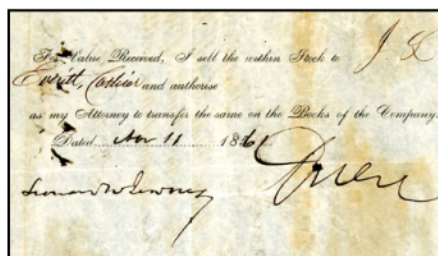 For Value Received, I sell the within Stock to J
Everitt, Cashier and authorise
as my Attorney to transfer the same on the Books of the Company.
Dated 11 1861